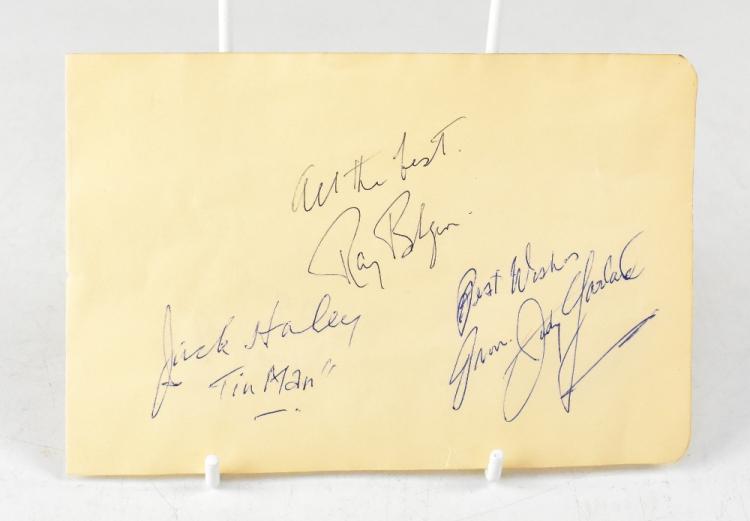 All the best.
Ray Bolger
Jack Haley
Tin Man"
Best Wishes
from. Judy Garland